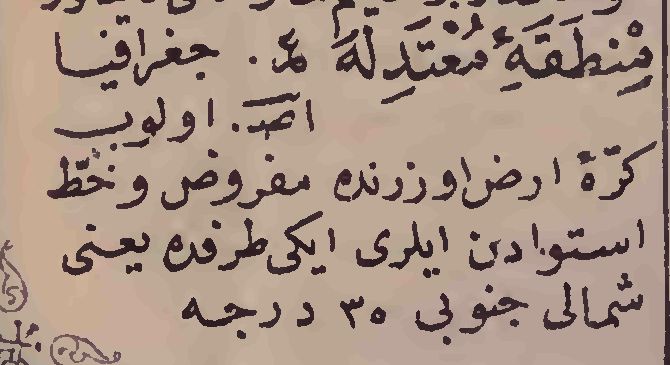 مِنْطَقَهٔ مُعْتَدِلَهْ مر. جغرافيا
اصـ. اولوب
كرّهٔ ارض اوزرنده مفروض و خطّ
استوادن ايلرى ايكى طرفده يعنى
شمالى جنوبى ٣٥ درجه